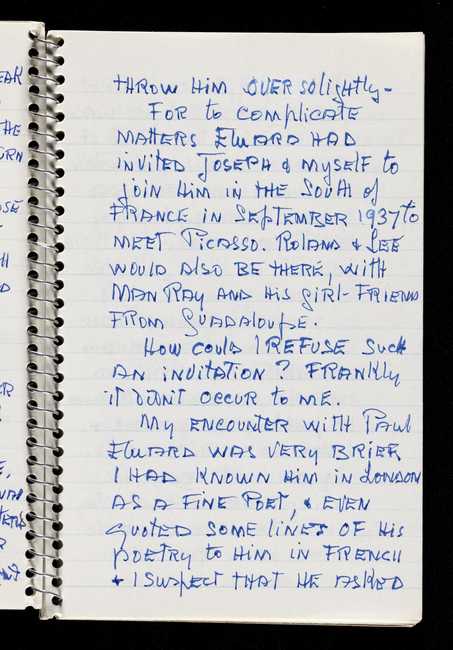 THROW HIM OVER SO lightly-
FOR to COMPLICATE
MATTERS ELUARD HAD
INVITED JOSEPH & MYSELF to
JOIN HIM IN THE SOUTH of
FRANCE IN SEPTEMBER 1937 to
MEET PICASSO. ROLAND & LEE
WOULD ALSO BE THERE, WITH
MAN RAY AND HIS GIRL-FRIEND
FROM GUADALOUPE.
HOW COULD I REFUSE SUCH
AN INVITATION? FRANKLY
IT DIDN'T OCCUR TO ME.
MY ENCOUNTER WITH PAUL
ELUARD WAS VERY BRIEF.
I HAD KNOWN HIM IN LONDON
AS A FINE POET, & EVEN
QUOTED SOME LINES OF HIS
POETRY TO HIM IN FRENCH
& I SUSPECT THAT HE ASKED